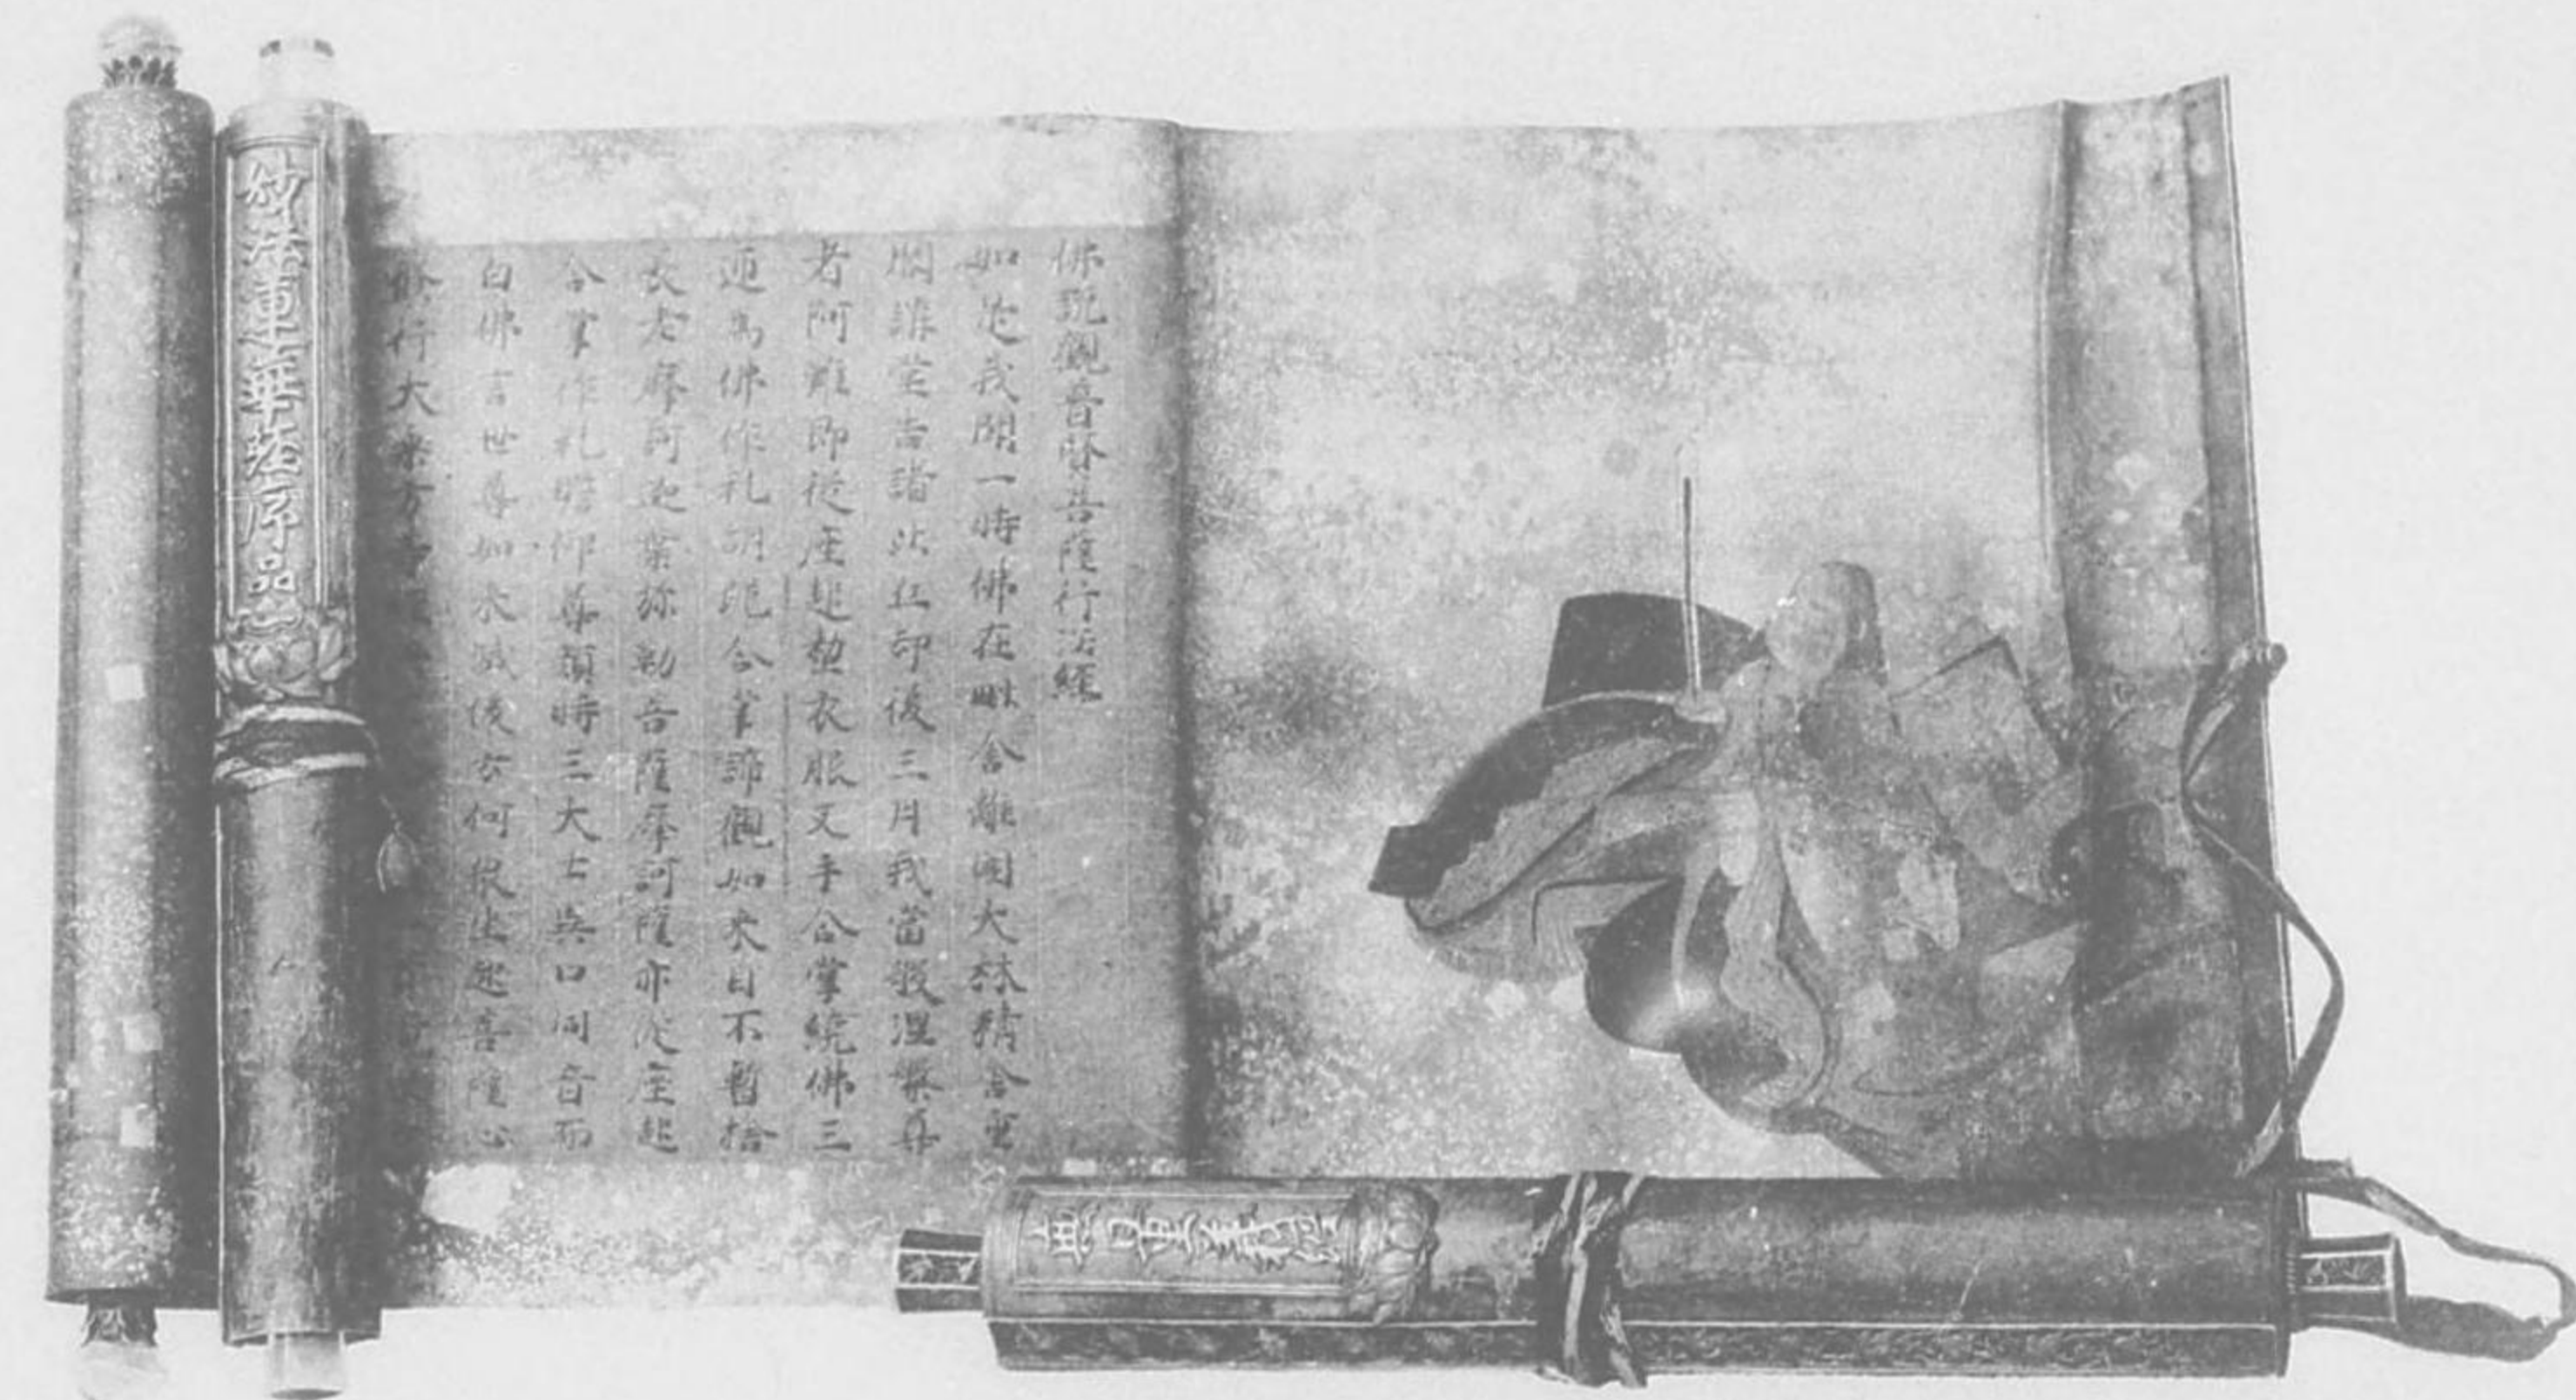 佛説觀普賢菩薩行法經
如是我聞一時佛在毗舍離國大林精舍重
閣講堂告諸比丘却後三月我當般涅槃尊
者阿難即從座起整衣服叉手合掌繞佛三
迊為佛作礼胡跪合掌諦觀如来目不暫捨
長老摩訶迦葉弥勒菩薩摩訶薩亦從座起
合掌作礼瞻仰尊顔時三大士異口同音而
白佛言世尊如来滅後云何衆生起菩薩心
修行大乗方等
妙法蓮華経序品
無量義經